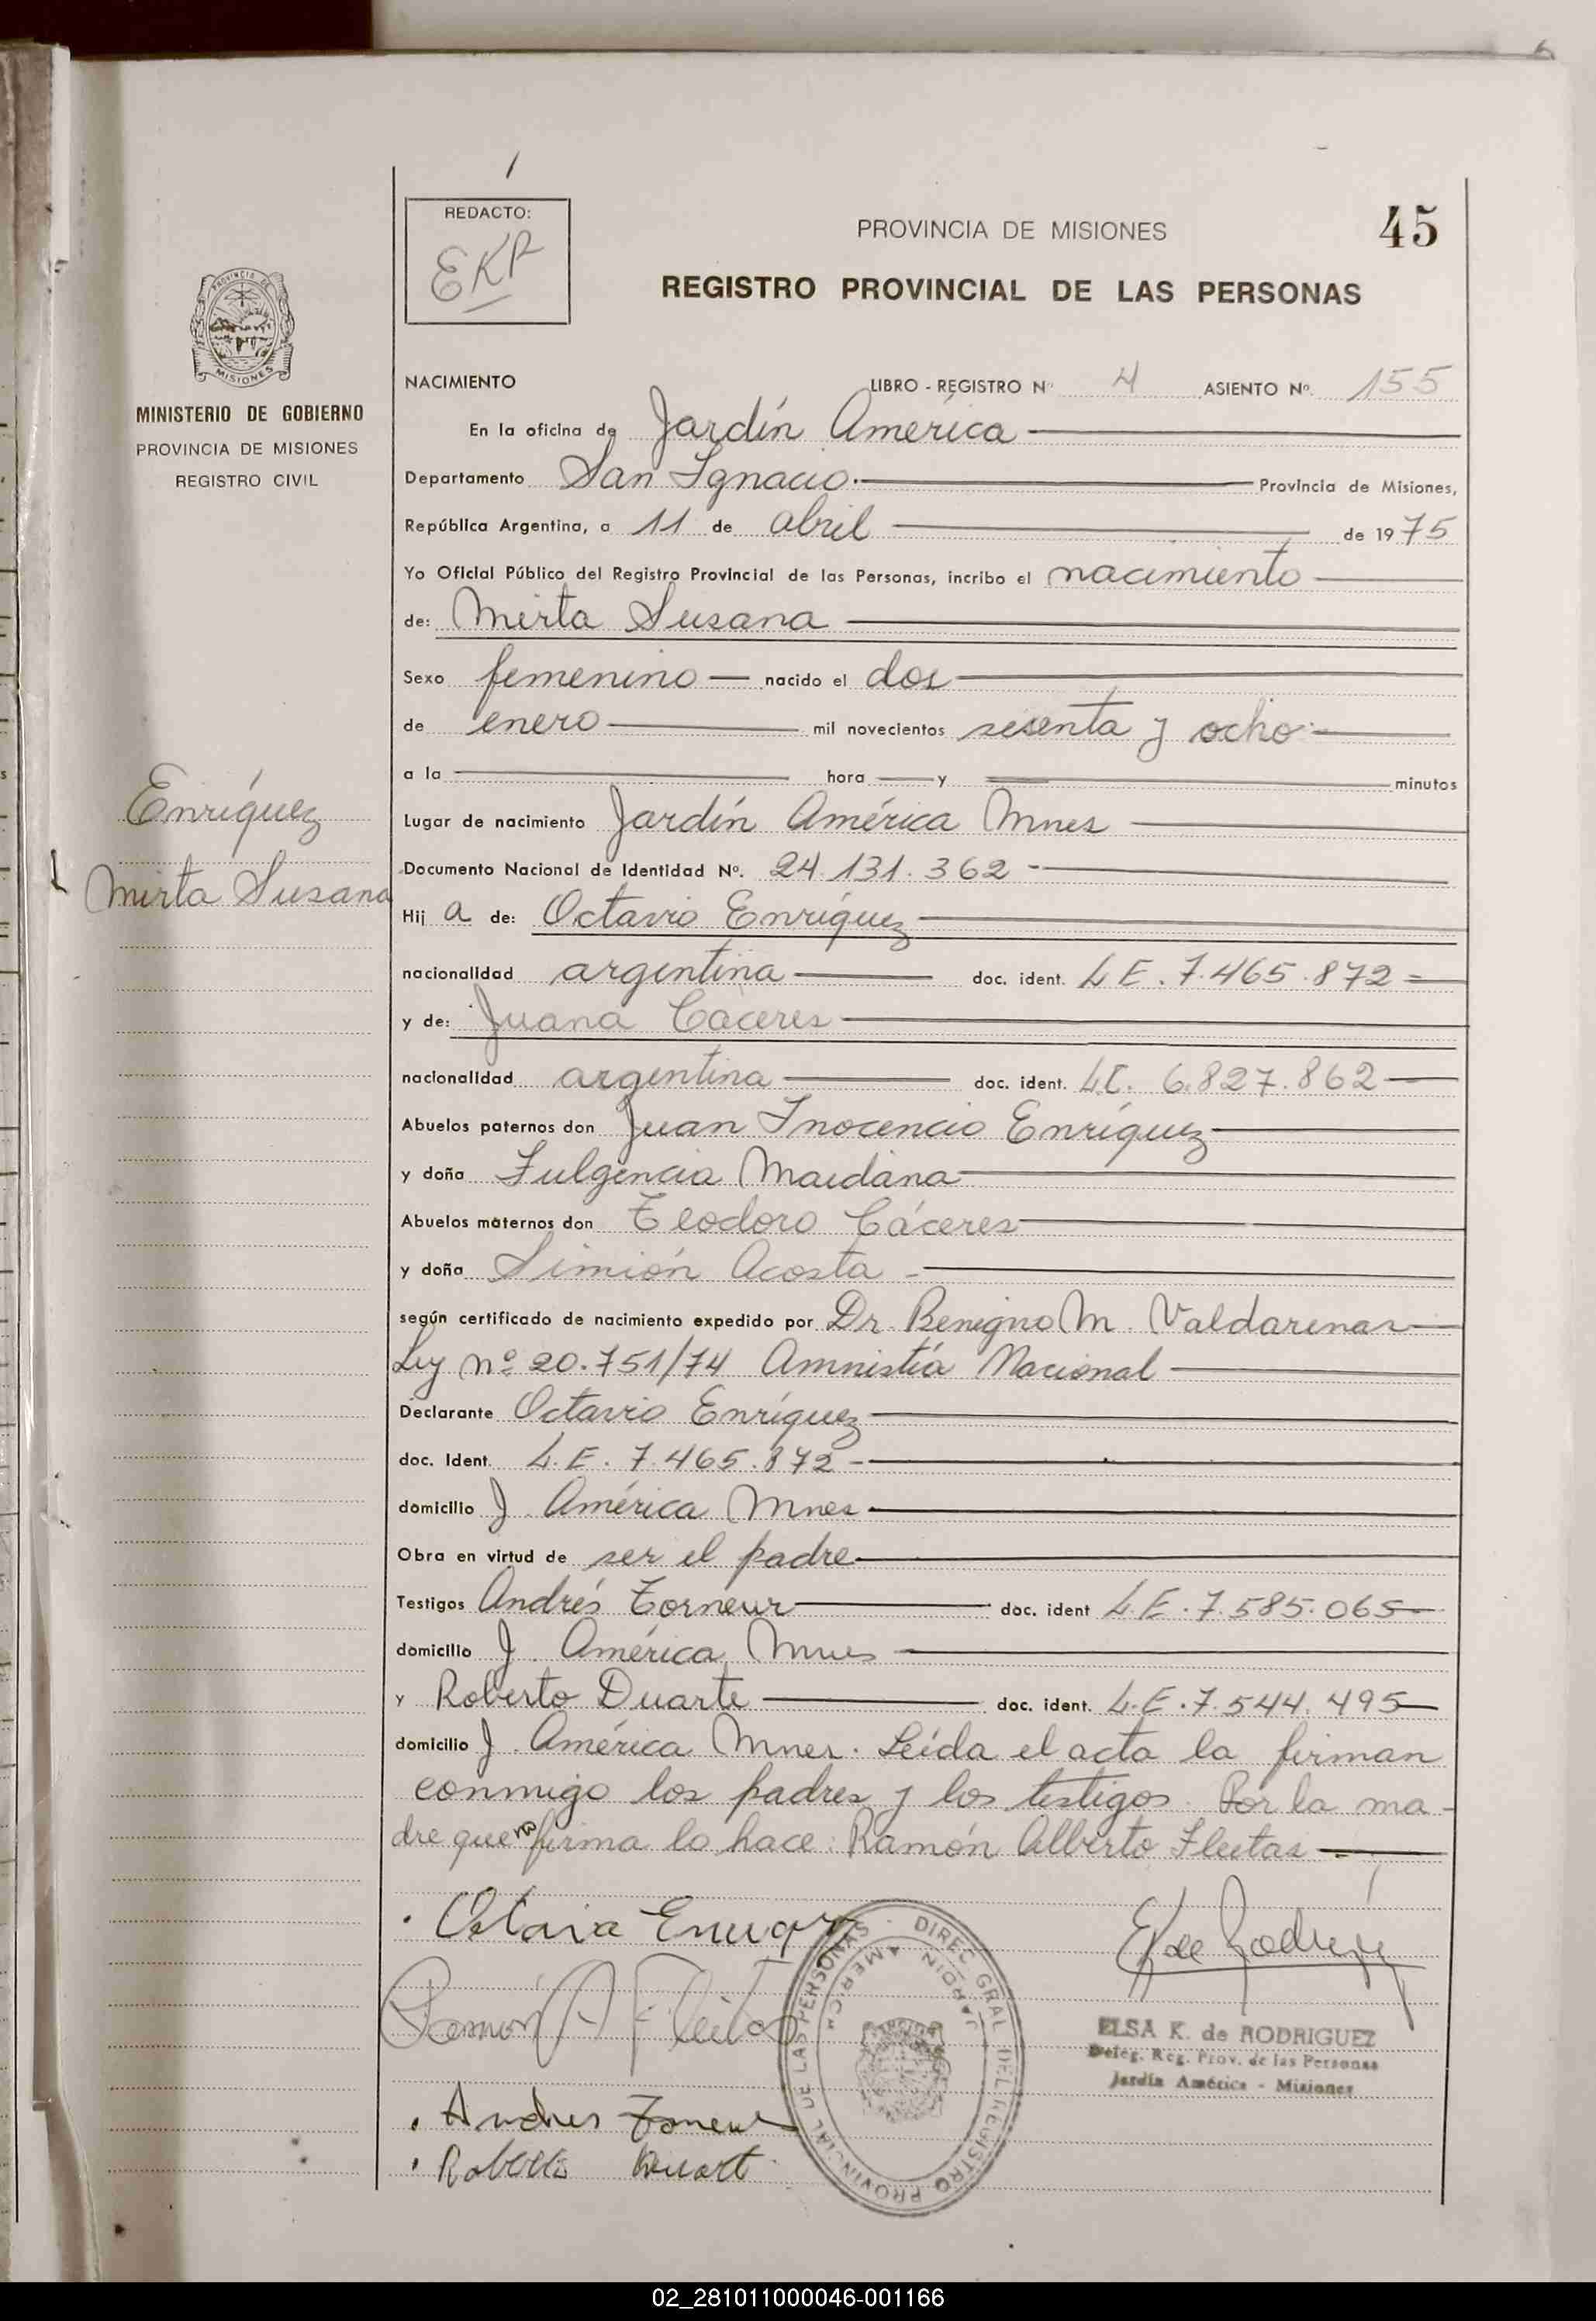 45
REDACTO:
EKR
PROVINCIA DE MISIONES
REGISTRO PROVINCIAL DE LAS PERSONAS
PROVINCIA DE
MISIONES
MINISTERIO DE GOBIERNO
PROVINCIA DE MISIONES
REGISTRO CIVIL
NACIMIENTO LIBRO - REGISTRO Nº 4 ASIENTO Nº. 155
En la oficina de Jardín América
Departamento San Ignacio. Provincia de Misiones,
República Argentina, a 11 de abril de 1975
Yo Oficial Público del Registro Provincial de las Personas, incribo el nacimiento
de: Mirta Susana
Sexo femenino — nacido el dos
de enero mil novecientos sesenta y ocho
a la hora y minutos
Enríquez
Mirta Susana
Lugar de nacimiento Jardín América Mnes
Documento Nacional de Identidad Nº. 24.131.362
Hij a de: Octavio Enríquez
nacionalidad argentina doc. ident. L.E. 7.465.872
y de: Juana Cáceres
nacionalidad argentina doc. ident. L.C. 6.827.862
Abuelos paternos don Juan Inocencio Enríquez
y doña Fulgencia Maidana
Abuelos maternos don Teodoro Cáceres
y doña Simión Acosta
según certificado de nacimiento expedido por Dr. Benigno M. Valdarenas
Ley nº 20.751/74 Amnistía Nacional
Declarante Octavio Enríquez
doc. Ident. L.E. 7.465.872
domicilio J. América Mnes
Obra en virtud de ser el padre
Testigos Andrés Torneur doc. ident L.E. 7.585.065
domicilio J. América Mnes
y Roberto Duarte doc. ident. L.E. 7.544.495
domicilio J. América Mnes. Leída el acta la firman
conmigo los padres y los testigos. Por la ma-
dre que no firma lo hace: Ramón Alberto Fleitas
Ramón A Fleitas
DIREC. GRAL. DEL REGISTRO PROVINCIAL DE LAS PERSONAS
JARDIN AMERICA
ELSA K. de RODRIGUEZ
Deleg. Reg. Prov. de las Personas
Jardín América - Misiones
Andres
Roberto Duart
02_281011000046-001166